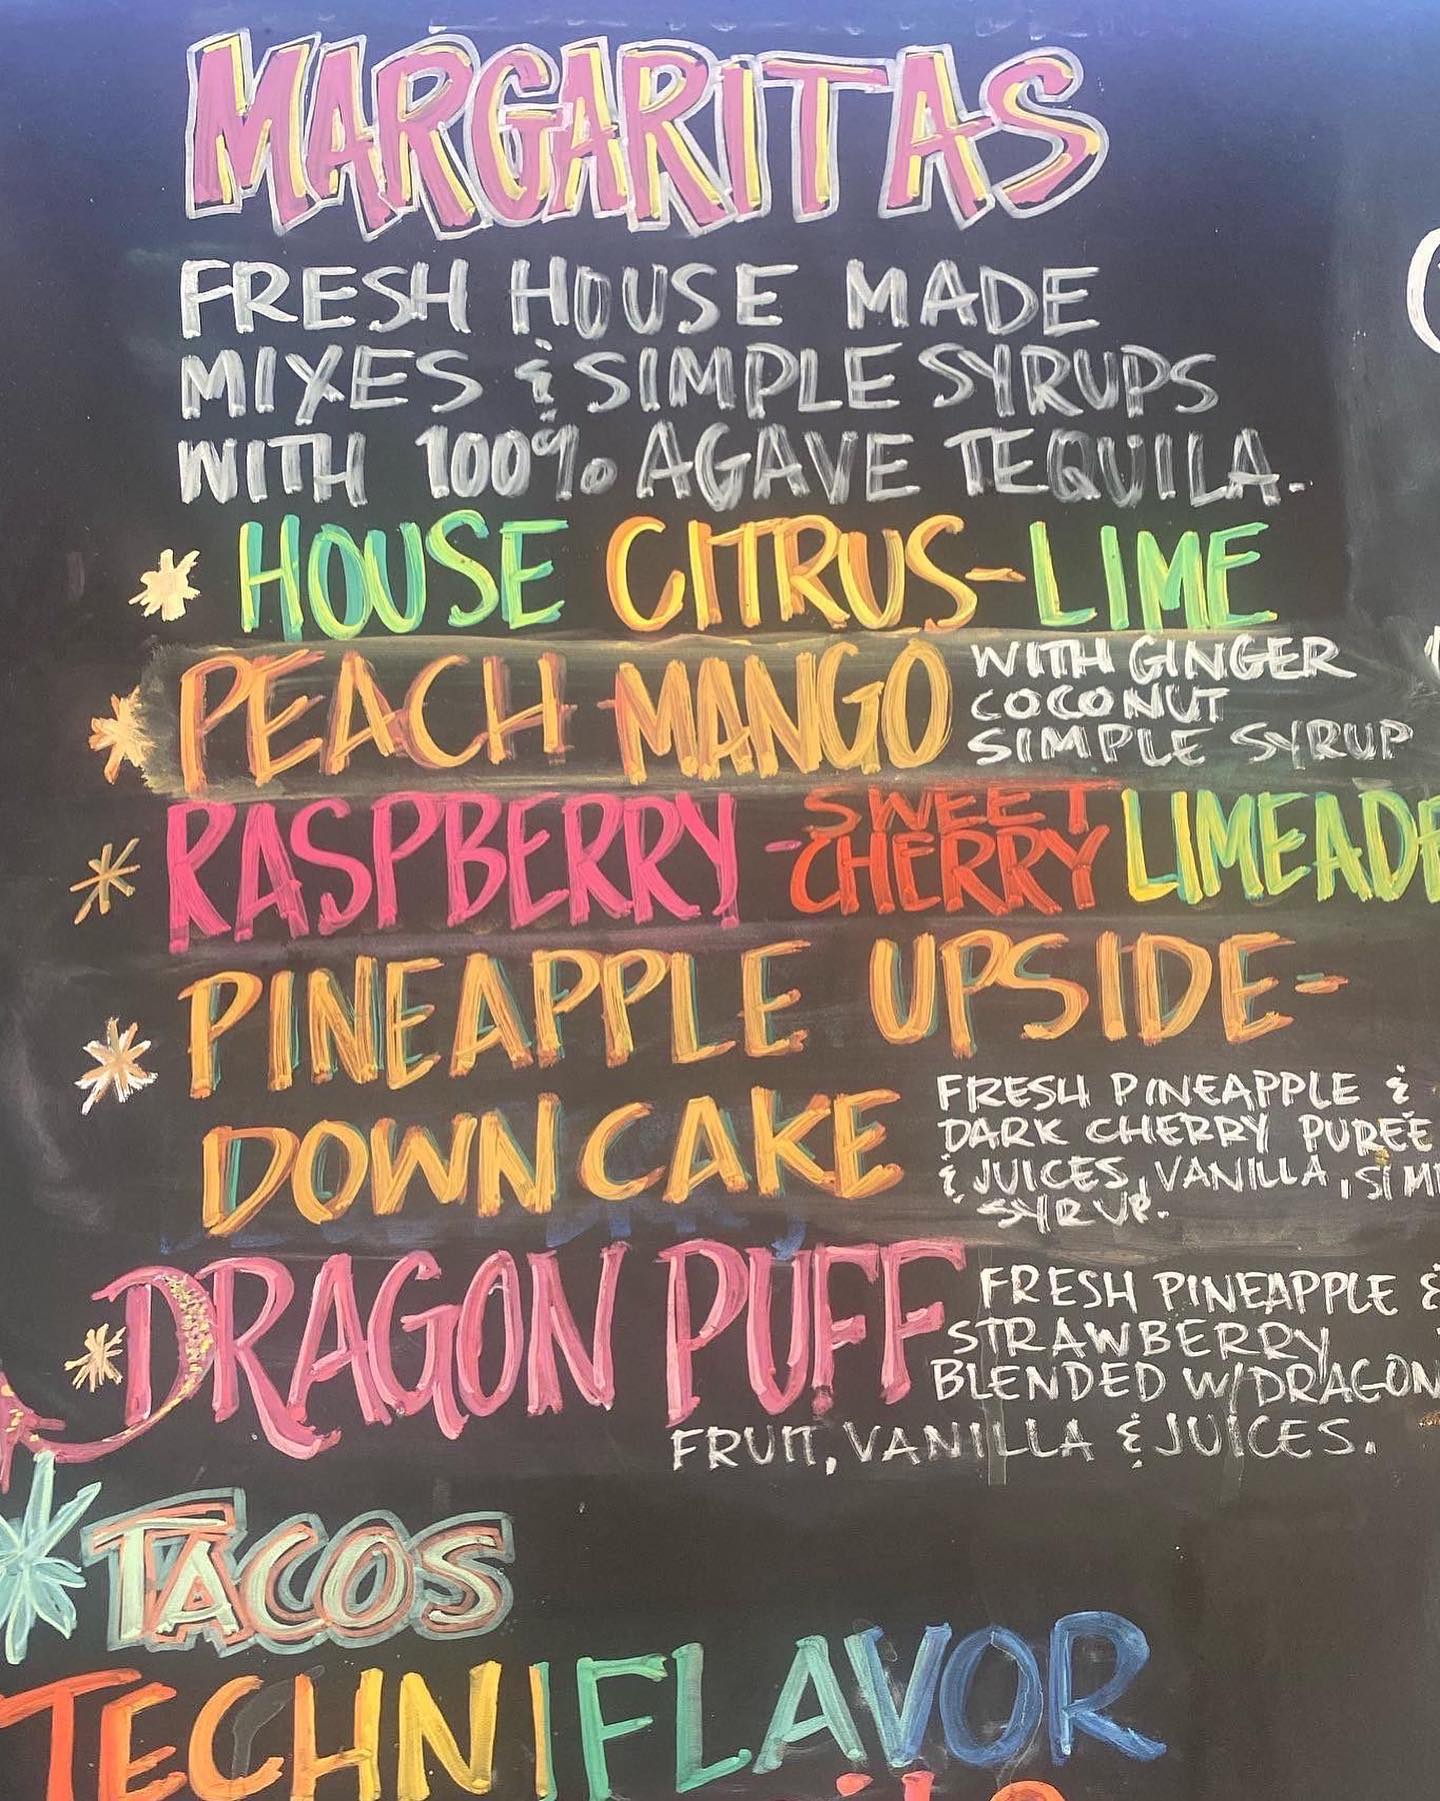 MARGARITAS
FRESH HOUSE MADE
MIXES & SIMPLE SYRUPS
WITH 100% AGAVE TEQUILA.
* HOUSE CITRUS-LIME
* PEACH MANGO WITH GINGER
COCONUT
SIMPLE SYRUP
* RASPBERRY - SWEET CHERRY LIMEADE
* PINEAPPLE UPSIDE-
DOWN CAKE FRESH PINEAPPLE &
DARK CHERRY PUREE
& JUICES, VANILLA, SIM
SYRUP.
* DRAGON PUFF FRESH PINEAPPLE &
STRAWBERRY
BLENDED W/DRAGON
FRUIT, VANILLA & JUICES.
* TACOS
TECHNIFLAVOR